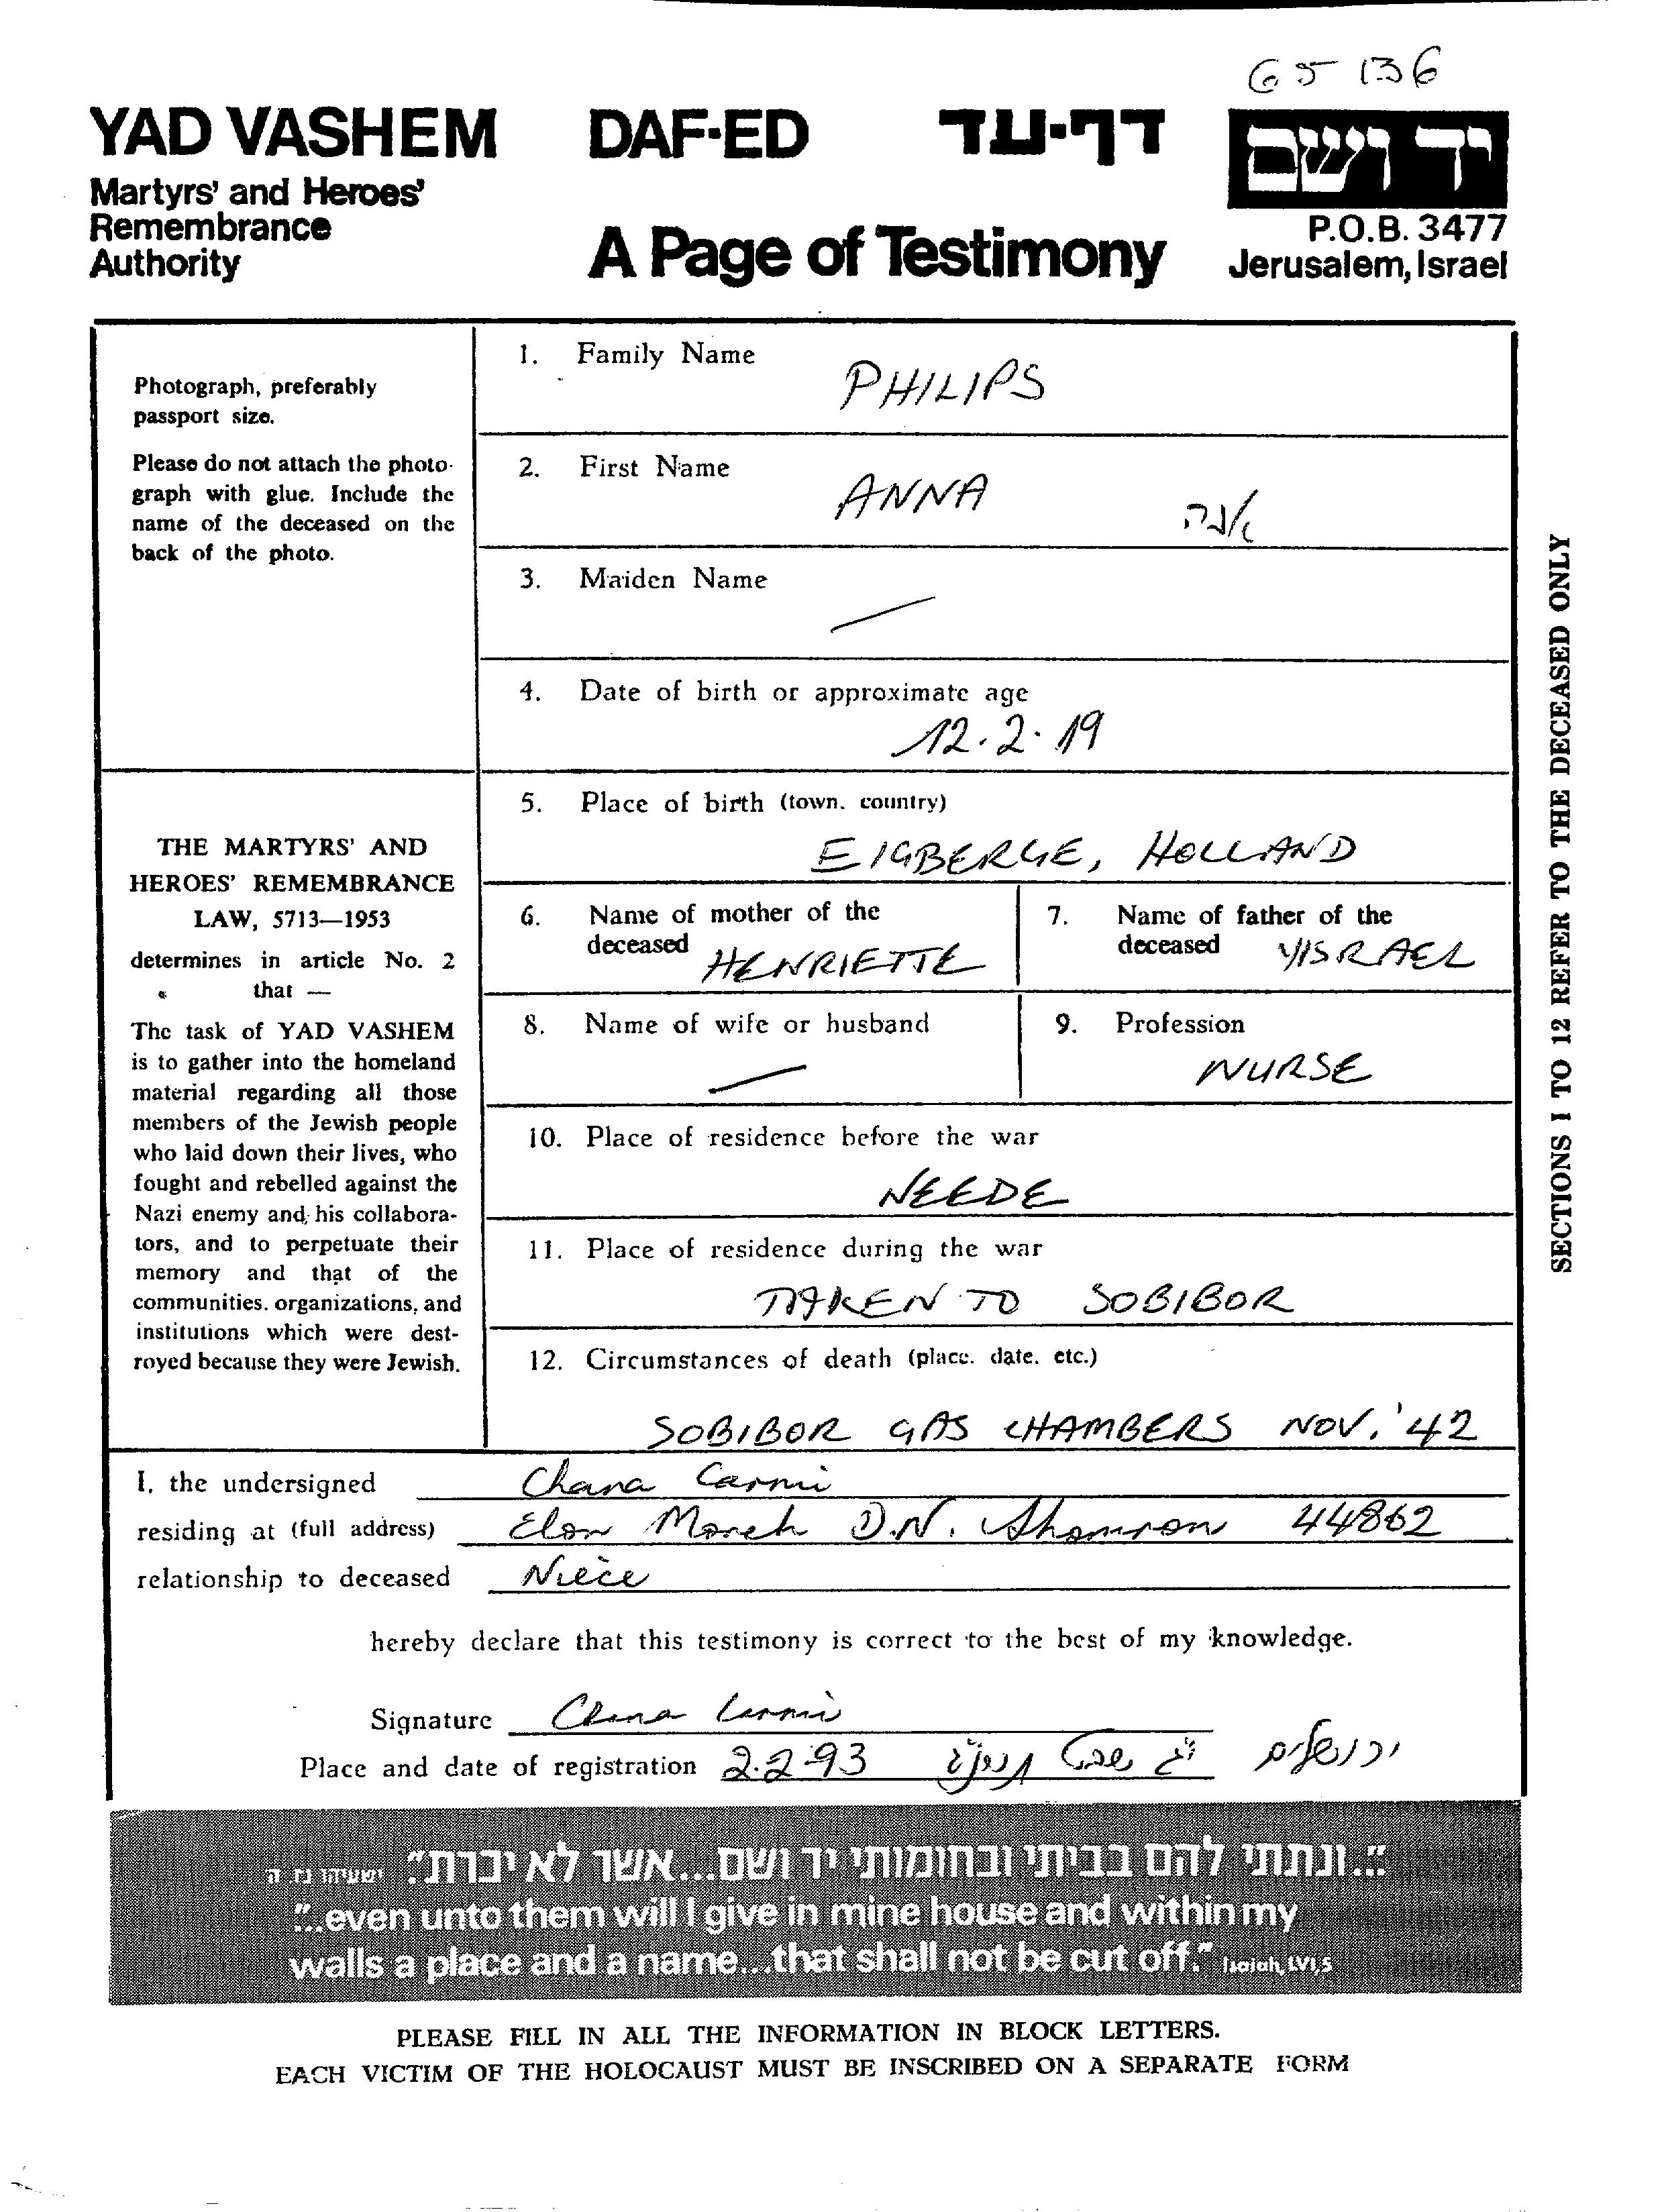 65 136
YAD VASHEM DAF-ED דף-עד יד ושם
Martyrs' and Heroes'
Remembrance
Authority
A Page of Testimony
P.O.B. 3477
Jerusalem, Israel
Photograph, preferably
passport size.
Please do not attach the photo-
graph with glue. Include the
name of the deceased on the
back of the photo.
THE MARTYRS' AND
HEROES' REMEMBRANCE
LAW, 5713—1953
determines in article No. 2
that —
The task of YAD VASHEM
is to gather into the homeland
material regarding all those
members of the Jewish people
who laid down their lives, who
fought and rebelled against the
Nazi enemy and his collabora-
tors, and to perpetuate their
memory and that of the
communities, organizations, and
institutions which were dest-
royed because they were Jewish.
1. Family Name
PHILIPS
2. First Name
ANNA אנה
3. Maiden Name
—
4. Date of birth or approximate age
12.2.19
5. Place of birth (town, country)
EIGBERGE, HOLLAND
6. Name of mother of the
deceased HENRIETTE
7. Name of father of the
deceased YISRAEL
8. Name of wife or husband
—
9. Profession
NURSE
10. Place of residence before the war
NEEDE
11. Place of residence during the war
TAKEN TO SOBIBOR
12. Circumstances of death (place, date, etc.)
SOBIBOR GAS CHAMBERS NOV. '42
SECTIONS 1 TO 12 REFER TO THE DECEASED ONLY
I, the undersigned Chana Carmi
residing at (full address) Elon Moreh D.N. Shomron 44862
relationship to deceased Niece
hereby declare that this testimony is correct to the best of my knowledge.
Signature Chana Carmi
Place and date of registration 2.2.93 י"ג שבט תשנ"ג ירושלים
"..ונתתי להם בביתי ובחומותי יד ושם...אשר לא יכרת." ישעיהו נו ה
"..even unto them will I give in mine house and within my
walls a place and a name...that shall not be cut off." Isaiah, LVI,5
PLEASE FILL IN ALL THE INFORMATION IN BLOCK LETTERS.
EACH VICTIM OF THE HOLOCAUST MUST BE INSCRIBED ON A SEPARATE FORM